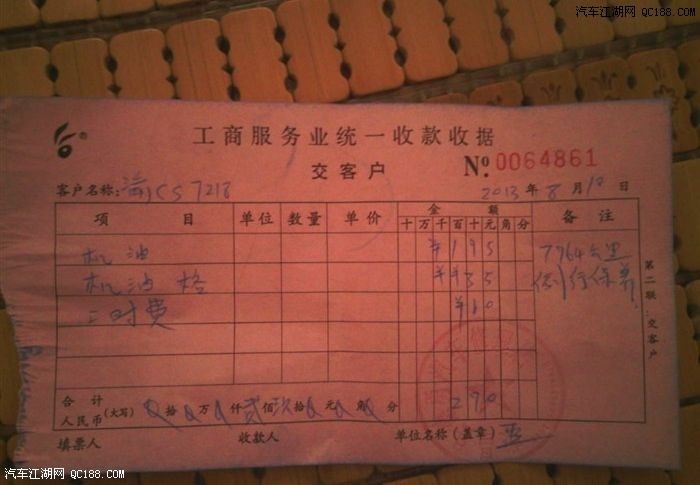 汽车江湖网 QC188.COM
工商服务业统一收款收据
交客户 № 0064861
客户名称: CS7218 2013 年 8 月 10 日
项目 单位 数量 单价 金额 备注
十 万 千 百 十 元 角 分
机油 ¥195 7764公里
机油格 ¥35 例行保养
工时费 ¥60
第二联:交客户
合计 人民币(大写) 拾 万 仟 贰 佰 玖 拾 元 角 分 290
填票人 收款人 单位名称(盖章)
汽车江湖网 QC188.COM